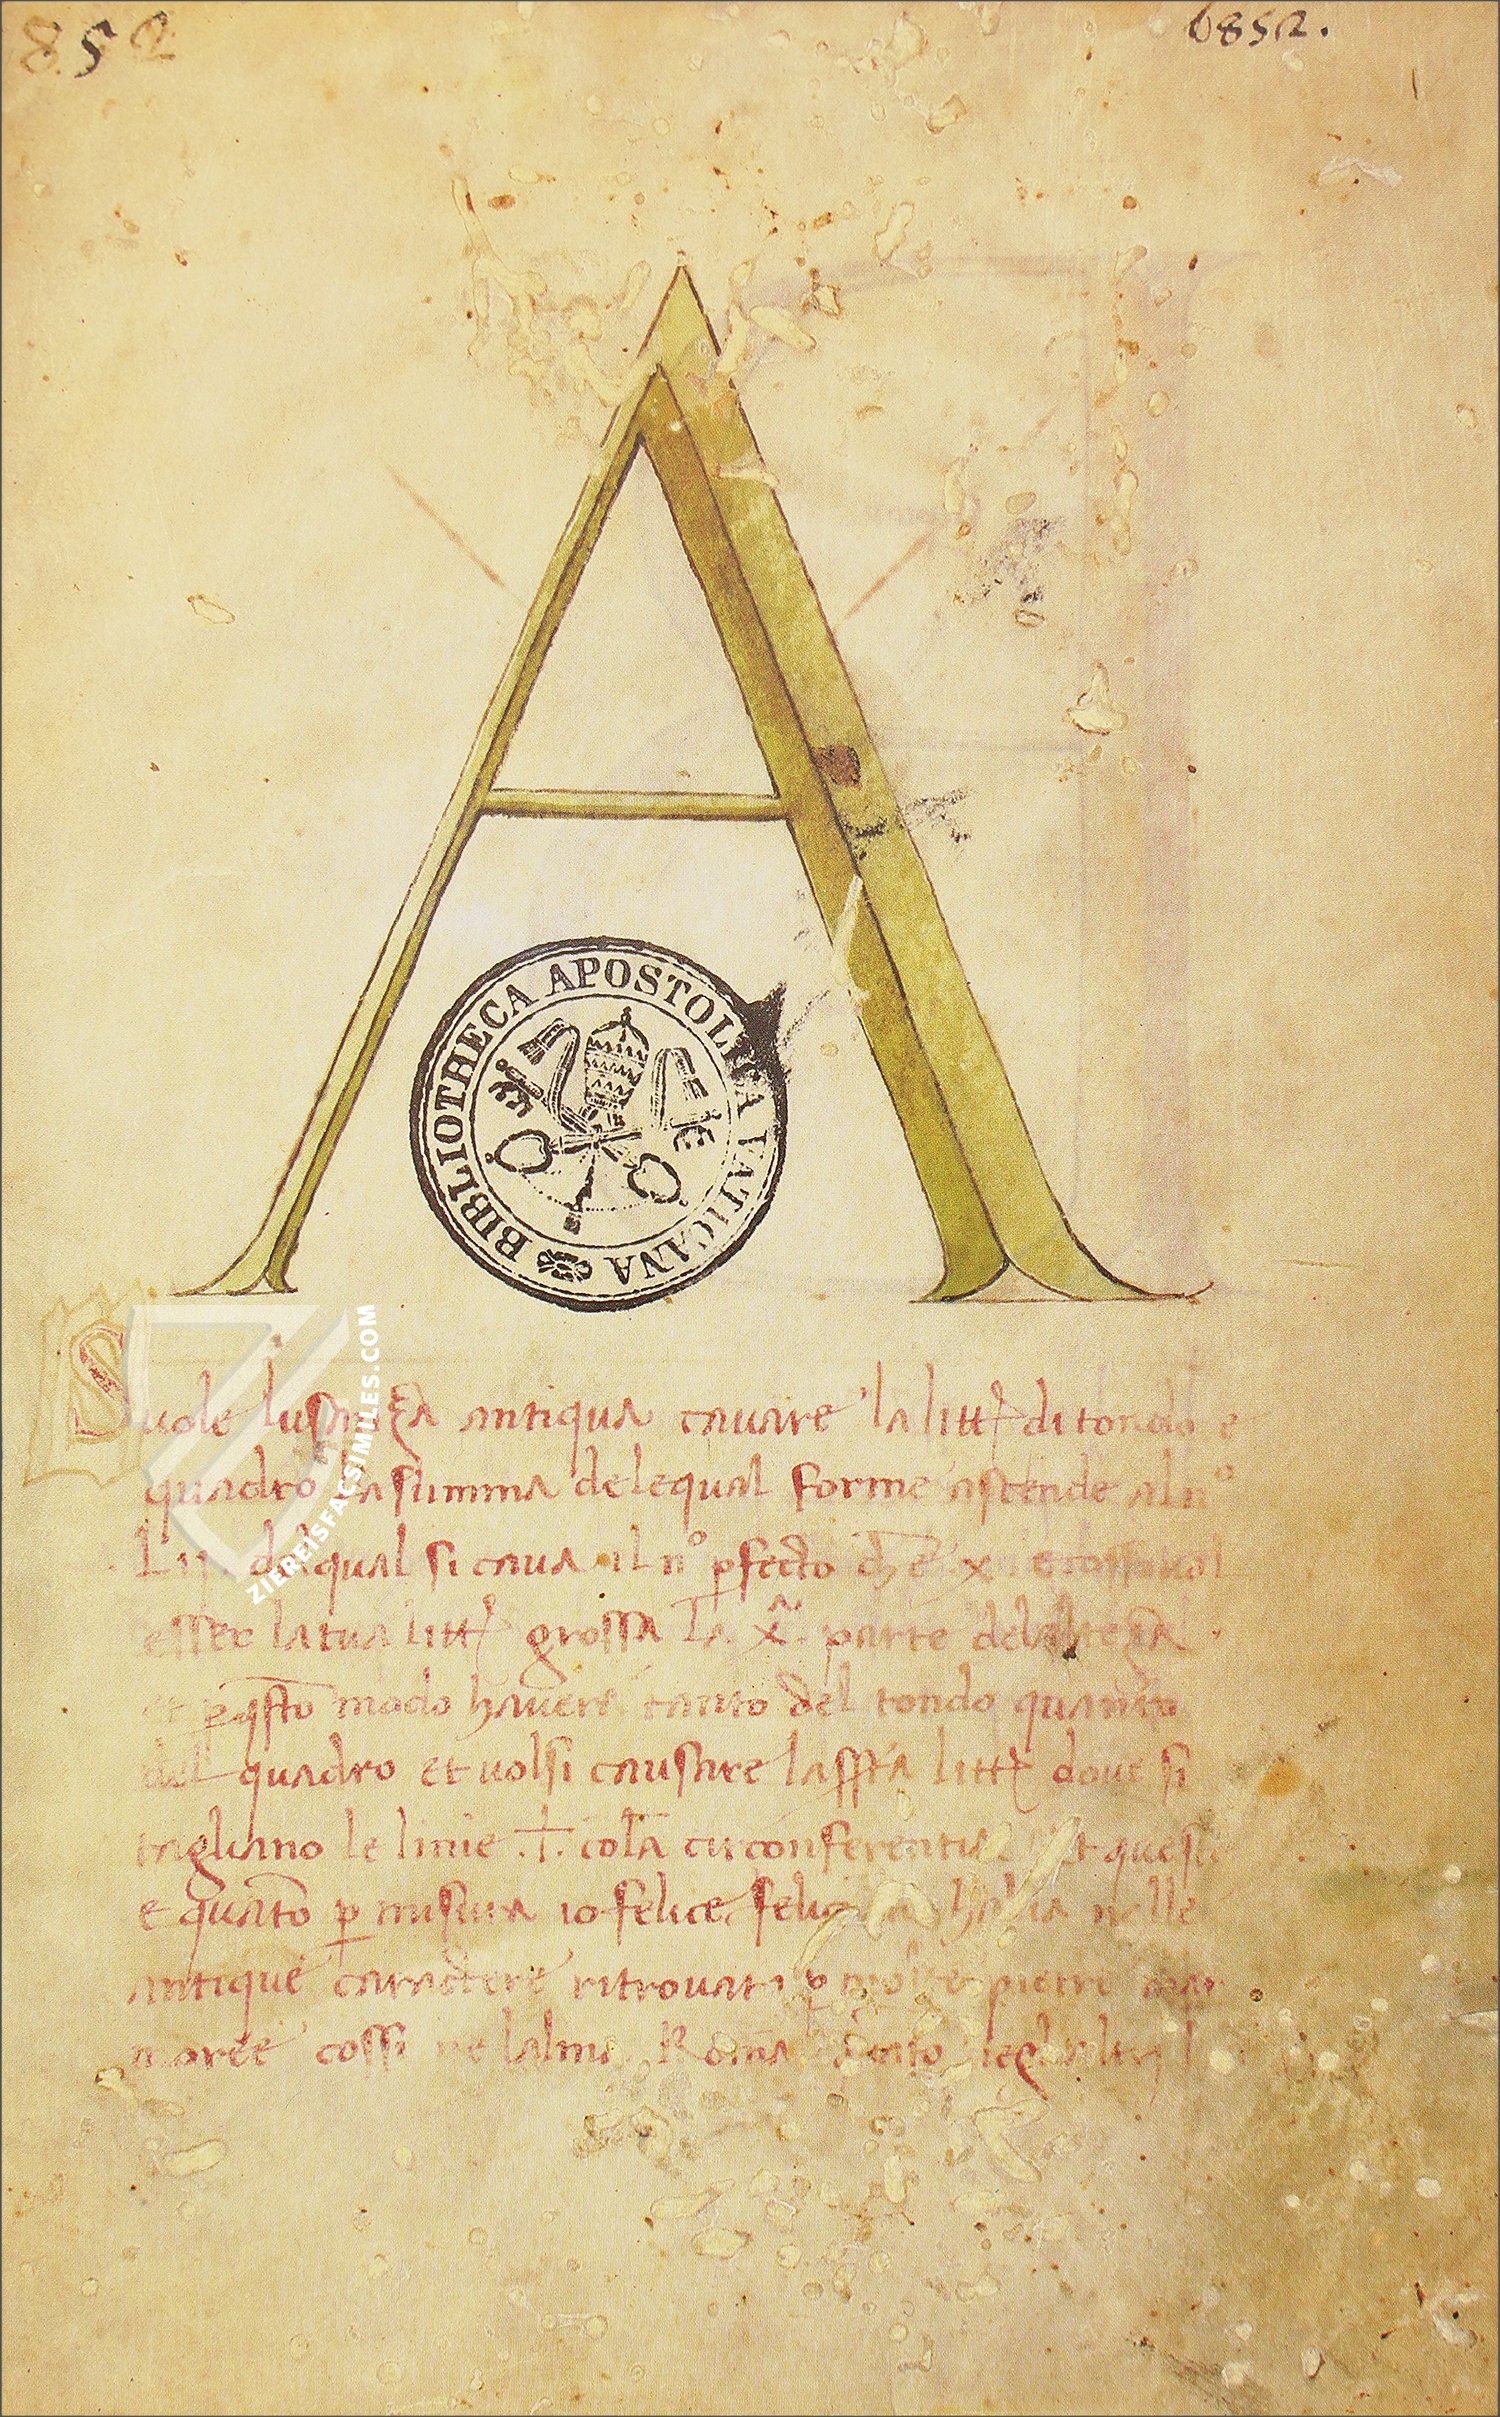 852
6852.
A
BIBLIOTHECA APOSTOLICA VATICANA
ZIEREISFACSIMILES.COM
Suole lusanza antiqua cauare la litt di tondo e
quadro la summa de le qual forme ascende al nº
Lij. dil qual si caua il nº pfecto che e x. e cossi uol
esser la tua litt grossa la xª. parte de lalteza
et p qsto modo hauera tanto del tondo quanto
del quadro et uolsi causare la ssta litt doue si
tagliano le linie .+. cola circonferentia Et questo
e quato p misura io felice felic halia nelle
antique caractere ritrouati p pietre mar
moree cossi ne lalma Roma